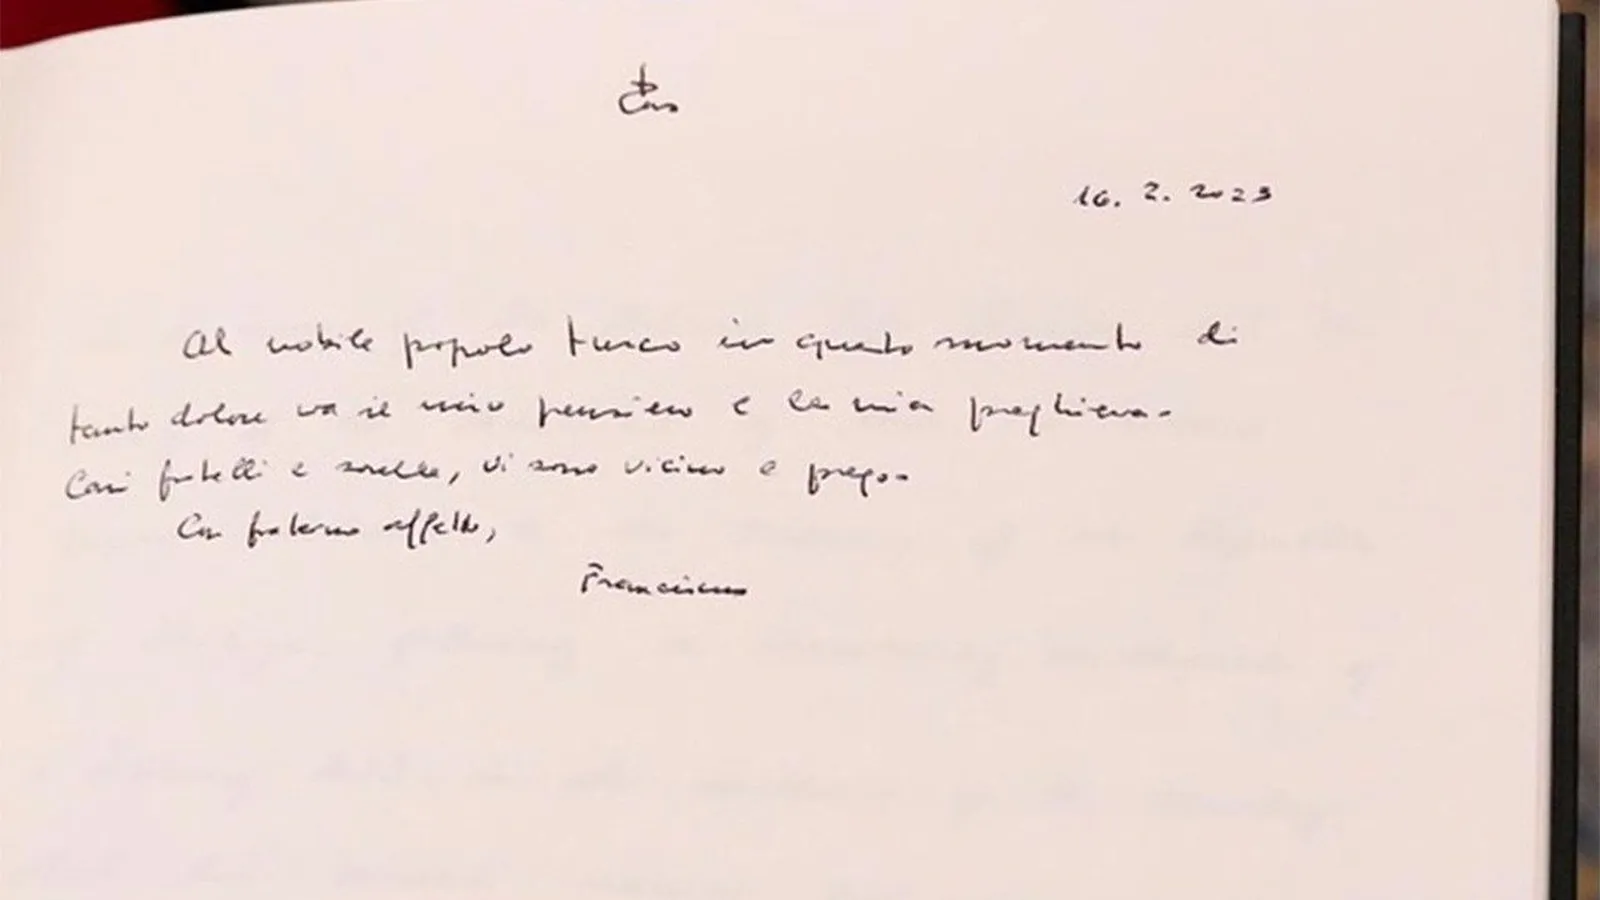 16. 2. 2023
Al nobile popolo turco in questo momento di
tanto dolore va il mio pensiero e la mia preghiera.
Cari fratelli e sorelle, vi sono vicino e prego.
Con fraterno affetto,
Franciscus